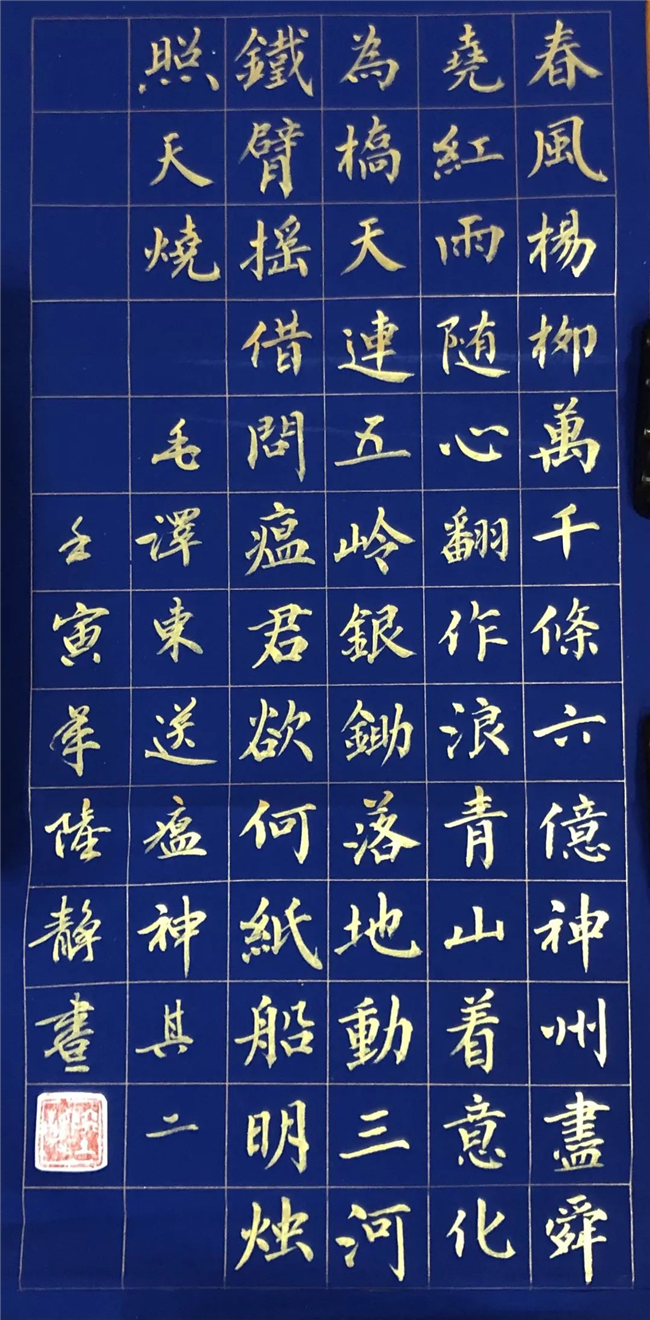 春風楊柳萬千條六億神州盡舜
堯紅雨随心翻作浪青山着意化
為橋天連五岭銀鋤落地動三河
鐵臂摇借問瘟君欲何紙船明烛
照天燒 毛澤東送瘟神其二
壬寅年陸靜書